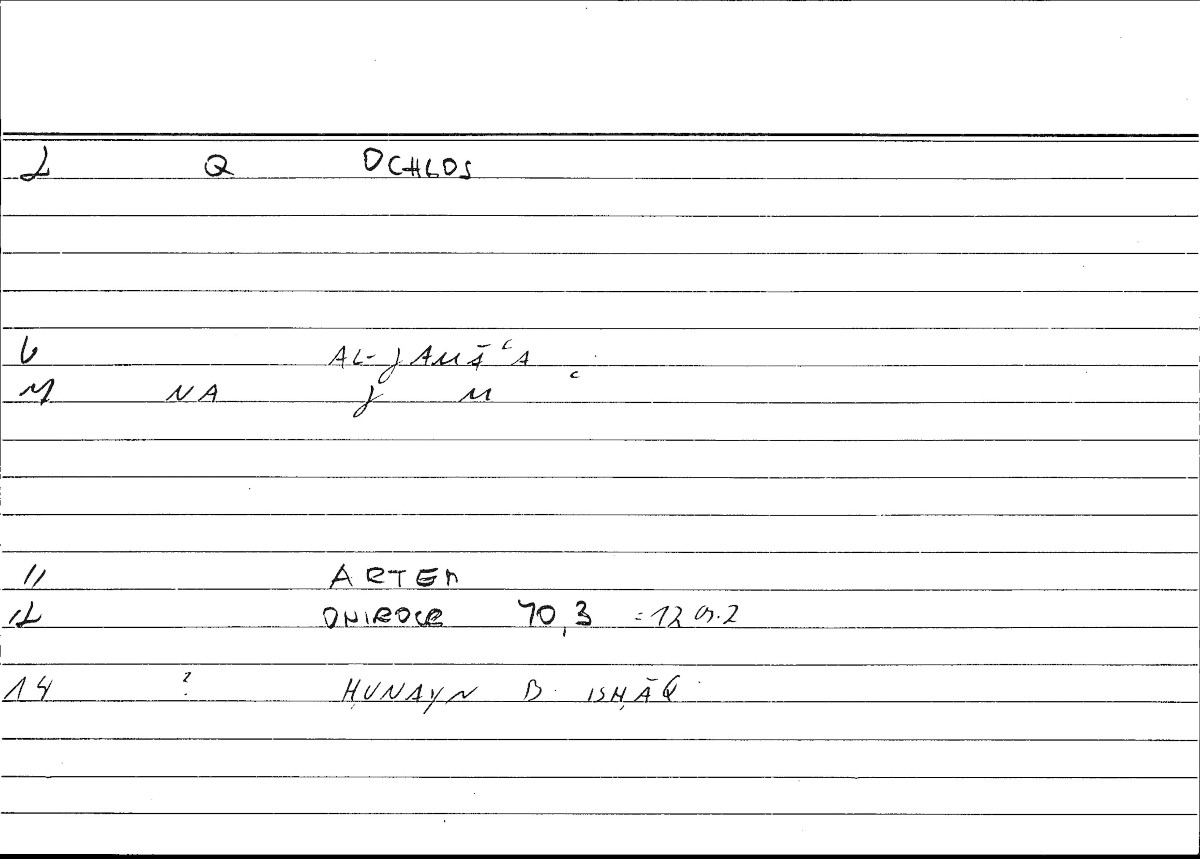 2 Q OCHLOS
6 AL-JAMĀʿA
7 NA J M ʿ
11 ARTEM
12 ONIROCR 70,3 =12
14 ? ḤUNAYN B. ISḤĀQ